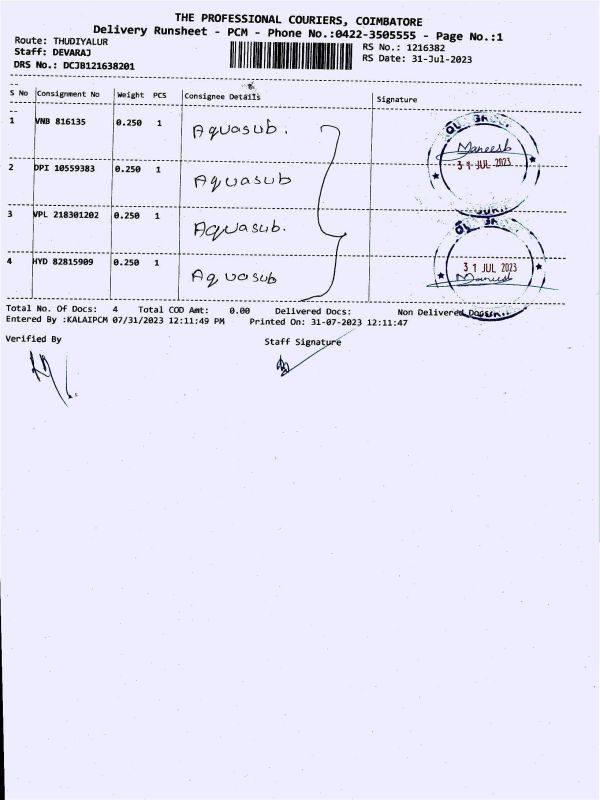 THE PROFESSIONAL COURIERS, COIMBATORE
Delivery Runsheet - PCM - Phone No.:0422-3505555 - Page No.:1
Route: THUDIYALUR
RS No.: 1216382
Staff: DEVARAJ
RS Date: 31-Jul-2023
DRS No.: DCJB121638201
S No Consignment No Weight PCS Consignee Details Signature
1 VNB 816135 0.250 1 Aquasub.
31 JUL 2023
2 DPI 10559383 0.250 1 Aquasub
3 VPL 218301202 0.250 1 Aquasub.
4 HYD 82815909 0.250 1 Aquasub
31 JUL 2023
Total No. Of Docs: 4 Total COD Amt: 0.00 Delivered Docs: Non Delivered Docs:
Entered By :KALAIPCM 07/31/2023 12:11:49 PM Printed On: 31-07-2023 12:11:47
Verified By Staff Signature